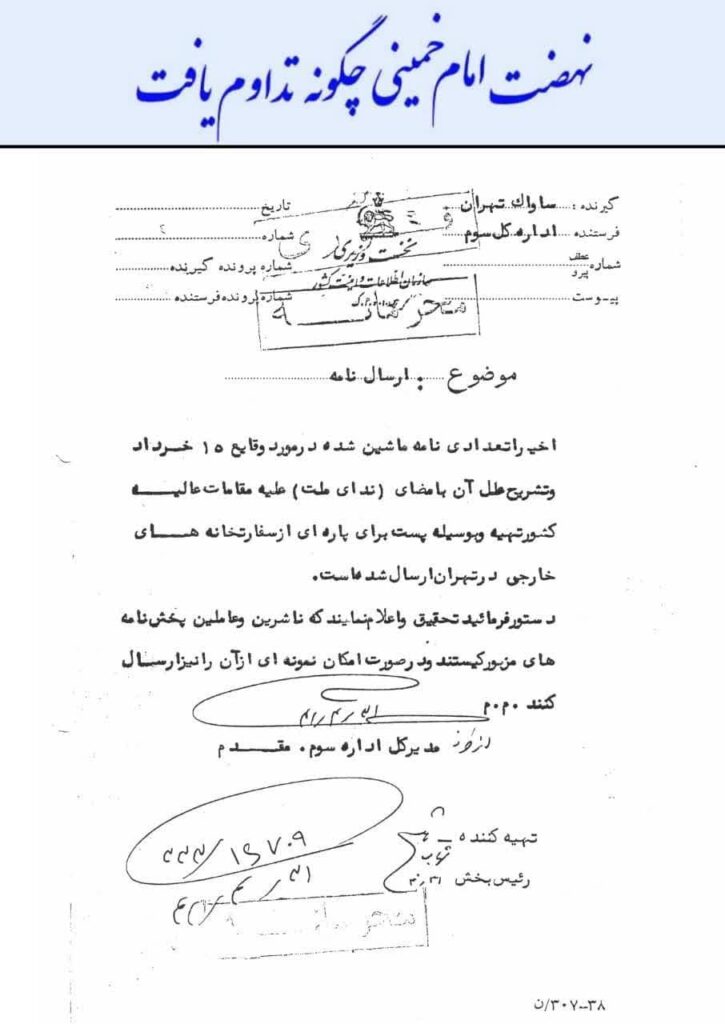 نهضت امام خمینی چگونه تداوم یافت
گیرنده : ساواك تهران
تاریخ
فرستنده اداره کل سوم
شماره
شماره عطف پیرو
شماره پرونده گیرنده
پیوست
شماره پرونده فرستنده
نخست وزیری
سازمان اطلاعات و امنیت کشور
محرمانه
موضوع : ارسال نامه
اخیرا تعدادی نامه ماشین شده در مورد وقایع ۱۵ خرداد
وتشریح علل آن بامضای (ندای ملت) علیه مقامات عالیه
کشور تهیه وبوسیله پست برای پاره ای از سفارتخانه های
خارجی در تهران ارسال شده است.
دستور فرمائید تحقیق واعلام نمایند که ناشرین وعاملین پخش نامه
های مزبور کیستند ودر صورت امکان نمونه ای از آن را نیز ارسال
کنند م.م
مدیر کل اداره سوم. مقدم
از طرف
تهیه کننده
رئیس بخش
محرمانه
۳۸-۳۰۷/ن